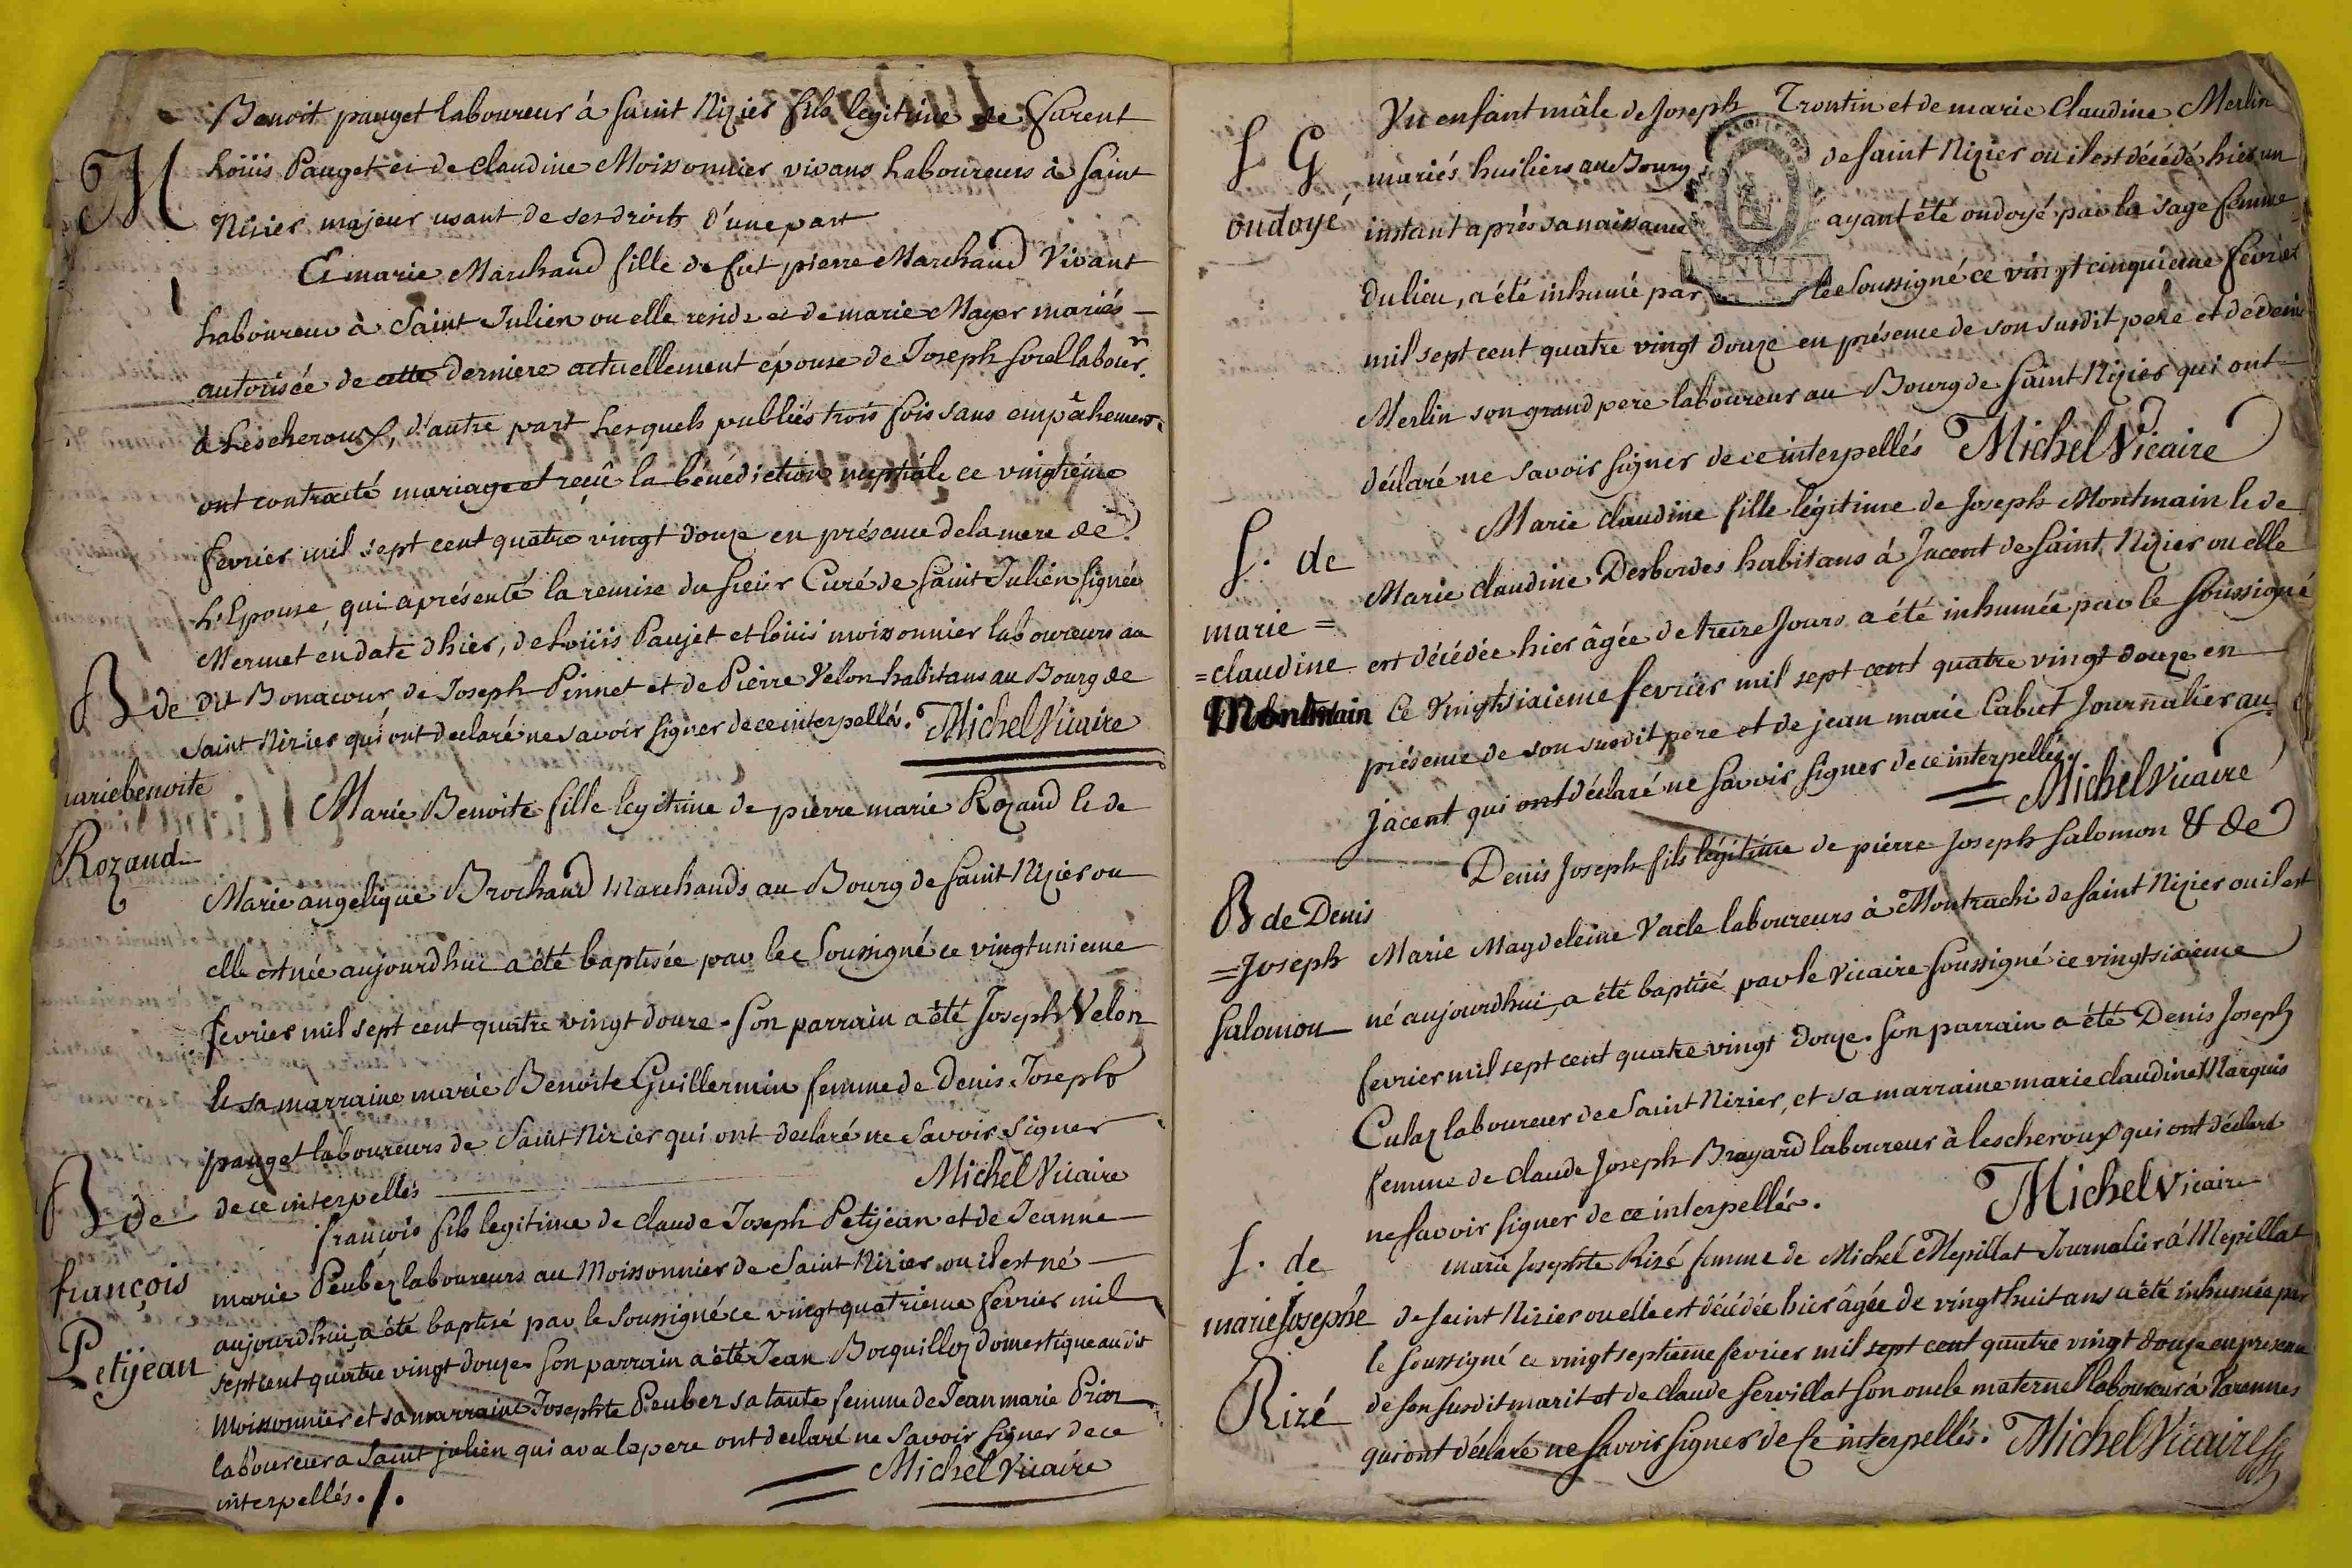 M
1
Benoit pauget laboureur à saint Nizier fils legitime de furent
Loüis Pauget et de Claudine Moissonnier vivans Laboureurs à saint
Nizier majeur usant de ses droits d'une part
Et marie Marchand fille de fut pierre Marchand Vivant
Laboureur à Saint Julien ou elle reside et de marie Mayer mariés
autorisée de cette derniere actuellement épouse de Joseph sorel labour.r
à Lescheroux, d'autre part Lesquels publiés trois fois sans empâchement
ont contracté mariage et reçû la bénédiction nuptiale ce vingtiéme
fevrier mil sept cent quatre vingt douze en présence de la mere de
L'Epouse, qui a présenté la remise du sieur Curé de Saint Julien signée
Mermet en date d'hier, de Loüis Paujet et loüis moissonnier laboureurs au
dit Bonacour, de Joseph Pinnet et de Pierre Velon habitans au Bourg de
Saint Nizier qui ont declaré ne savoir signer de ce interpellés. Michel Vicaire
B de
marie benoite
Rozand
Marie Benoite fille legitime de pierre marie Rozand & de
Marie angelique Brochand Marchands au Bourg de Saint Nizier ou
elle est née aujourdhui a été baptisée par le Soussigné ce vingt unieme
fevrier mil sept cent quatre vingt douze. son parrain a été Joseph Velon
& sa marraine marie Benoite Guillermin femme de Denis Joseph
pauget laboureurs de Saint Nizier qui ont declaré ne savoir signer
de ce interpellés
Michel Vicaire
B de
françois
Petijean
françois fils legitime de claude Joseph Petijean et de Jeanne
marie Peubez laboureurs au Moissonnier de Saint Nizier ou il est né
aujourdhui, a été baptisé par le soussigné ce vingt quatrieme fevrier mil
sept cent quatre vingt douze. son parrain a été Jean Bocquilloz domestique au dit
Moissonnier et sa marraine Josephte Peubez sa tante femme de Jean marie Prioz
laboureur a Saint julien qui avec le pere ont declaré ne savoir signer de ce
interpellés. /.
Michel Vicaire
S G
ondoyé
Un enfant mâle de Joseph Trontin et de marie Claudine Merlin
mariés huiliers au Bourg de Saint Nizier ou il est décédé hier un
instant après sa naissance ayant été ondoyé par la sage femme
du lieu, a été inhumé par le Soussigné ce vingt cinquieme fevrier
mil sept cent quatre vingt douze en présence de son susdit pere et de denis
Merlin son grand pere laboureur au Bourg de Saint Nizier qui ont
déclaré ne savoir signer de ce interpellés Michel Vicaire
S. de
marie =
=claudine
Montmain
Marie claudine fille légitime de Joseph Montmain & de
Marie claudine Desbordes habitans à Jacent de Saint Nizier ou elle
est décédée hier âgée de treize jours a été inhumée par le Soussigné
Ce Vingtsixieme fevrier mil sept cent quatre vingt douze en
présence de son susdit pere et de jean marie Cabut Journalier au
Jacent qui ont déclaré ne savoir signer de ce interpellés.
Michel Vicaire
B de Denis
=Joseph
Salomon
Denis Joseph fils légitime de pierre Joseph Salomon & de
Marie Magdeleine Vacle laboureurs à Montrachi de Saint Nizier ou il est
né aujourdhui, a été baptisé par le Vicaire soussigné ce vingtsixieme
fevrier mil sept cent quatre vingt douze. son parrain a été Denis Joseph
Culaz laboureur de Saint Nizier, et sa marraine marie claudine Marquis
femme de claude Joseph Brayard laboureur à lescheroux qui ont déclaré
ne savoir signer de ce interpellés.
Michel Vicaire
S. de
marie Josephe
Rizé
marie Josephte Rizé femme de Michel Mepillat Journalier à Mepillat
de saint Nizier ou elle est décédée hier âgée de vingt huit ans a été inhumée par
le soussigné ce vingt septieme fevrier mil sept cent quatre vingt douze en presence
de son susdit marit et de claude Servillat son oncle maternel laboureur à Varennes
qui ont déclaré ne savoir signer de Ce interpellés. Michel Vicaire